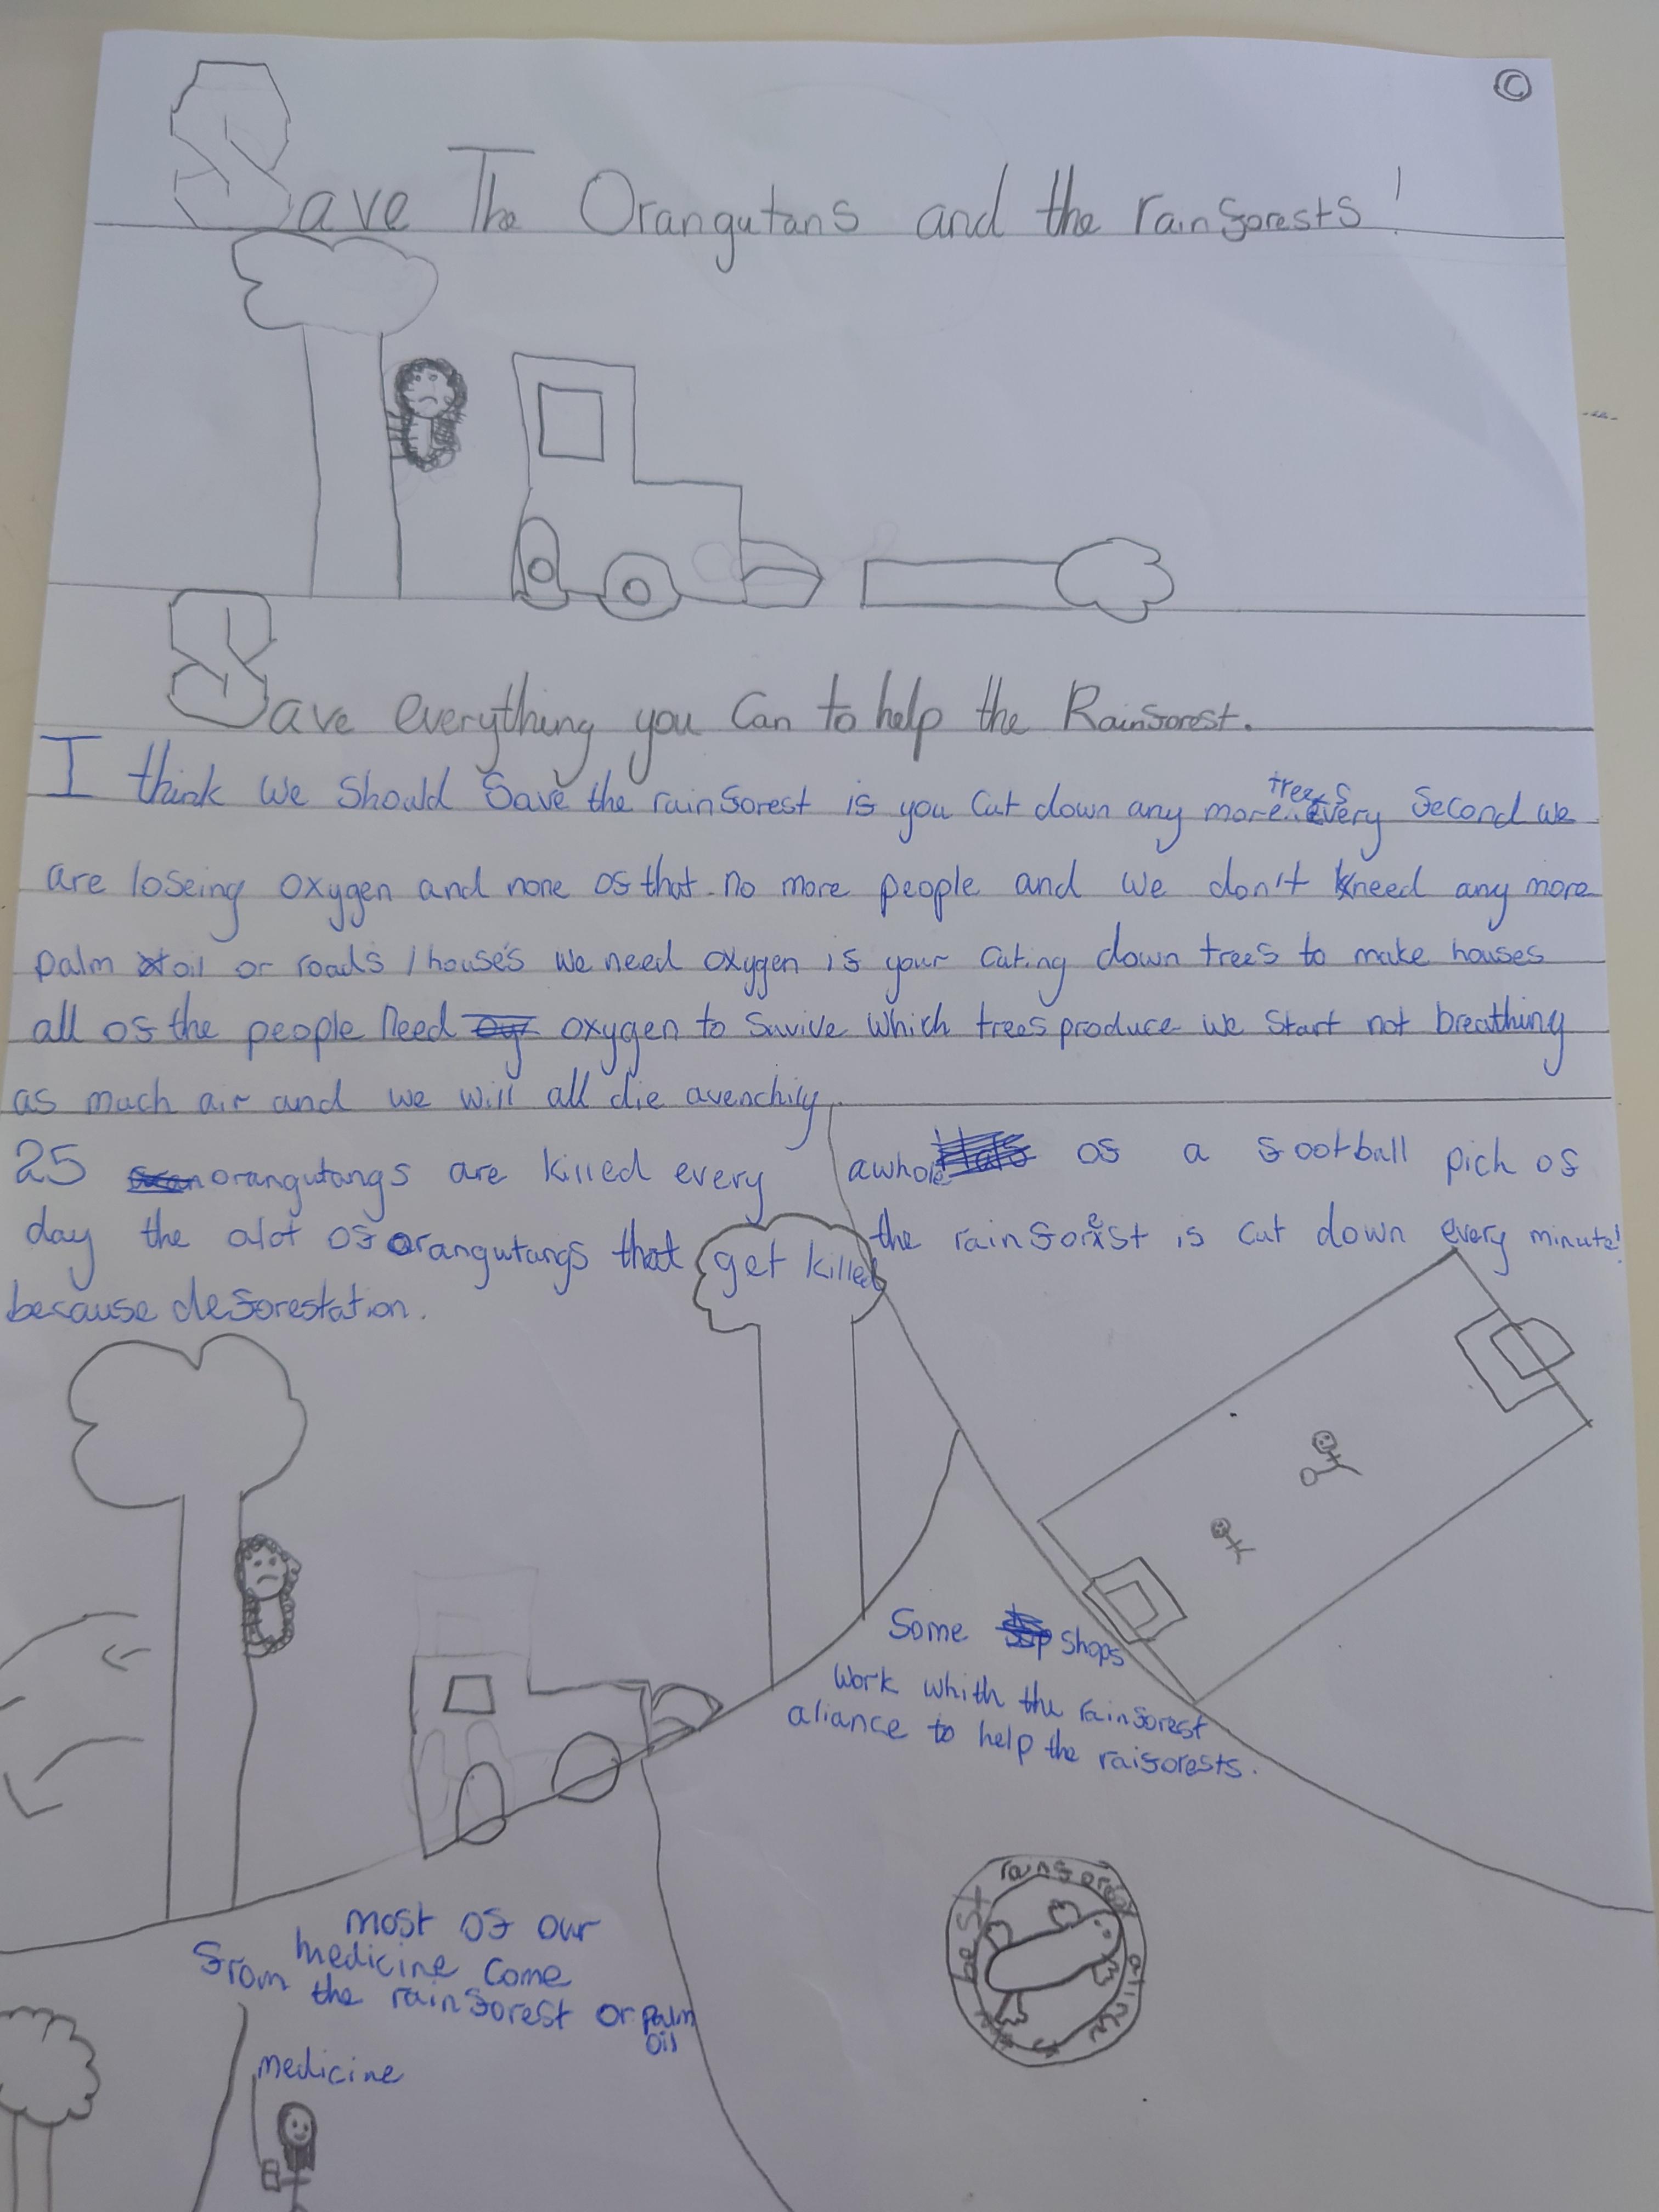 ©
Save The Orangutans and the rainforests!
Save everything you Can to help the Rainforest.
I think we should Save the rainforest if you cut down any more trees. Every Second we
are loseing oxygen and none of that no more people and we don't need any more
palm oil or roads / houses we need oxygen if your cuting down trees to make houses
all of the people need oxygen to suvive which trees produce we start not breathing
as much air and we will all die avenchily.
25 orangutangs are killed every
day the alot of orangutangs that get killed
because deforestation.
awhole of a football pich of
the rainforest is cut down every minute!
Some shops
work whith the rainforest
aliance to help the raiforests.
rainforest alince
be st
most of our
medicine come
from the rainforest or palm
oil
medicine